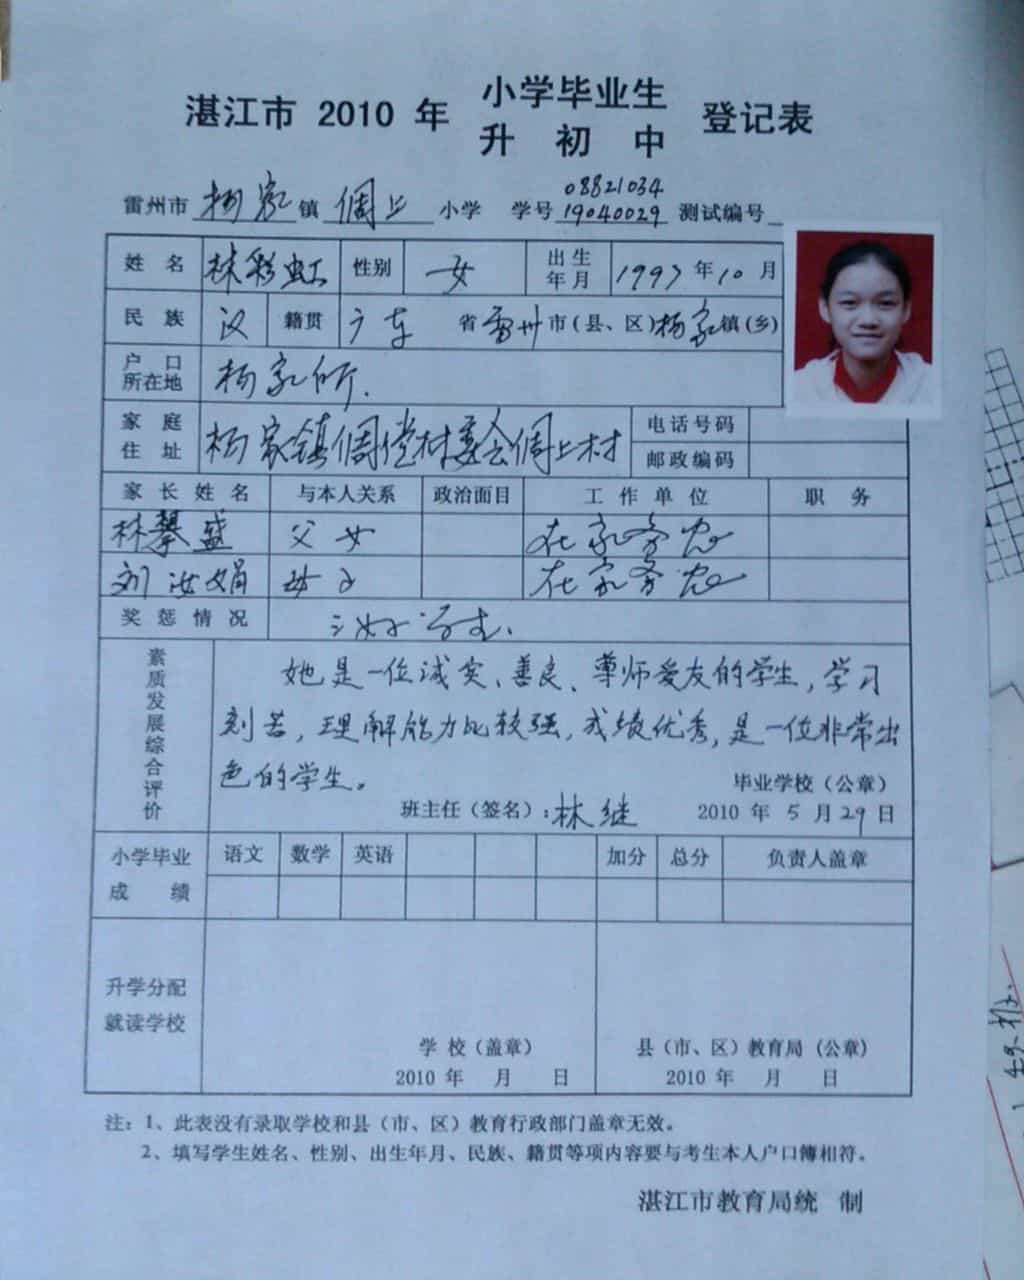 湛江市 2010 年 小学毕业生 登记表
升 初 中
08821034
雷州市 杨家 镇 倜上 小学 学号 19040029 测试编号
姓 名 林彩虹 性别 女 出生年月 1997 年 10 月
民 族 汉 籍贯 广东 省 雷州 市(县、区) 杨家 镇(乡)
户 口 所在地 杨家所.
家 庭 住 址 杨家镇 村委会 村 电话号码
邮政编码
家 长 姓 名 与本人关系 政治面目 工 作 单 位 职 务
林攀盛 父女 在家务农
刘汝娟 母子 在家务农
奖 惩 情 况 三好学生.
素质发展综合评价
她是一位诚实、善良、尊师爱友的学生，学习
刻苦，理解能力比较强，成绩优秀，是一位非常出
色的学生。
毕业学校（公章）
班主任（签名）：林继 2010 年 5 月 29 日
小学毕业 成 绩 语文 数学 英语 加分 总分 负责人盖章
升学分配
就读学校
学 校（盖章） 县（市、区）教育局（公章）
2010 年 月 日 2010 年 月 日
注：1、此表没有录取学校和县（市、区）教育行政部门盖章无效。
2、填写学生姓名、性别、出生年月、民族、籍贯等项内容要与考生本人户口簿相符。
湛江市教育局统 制